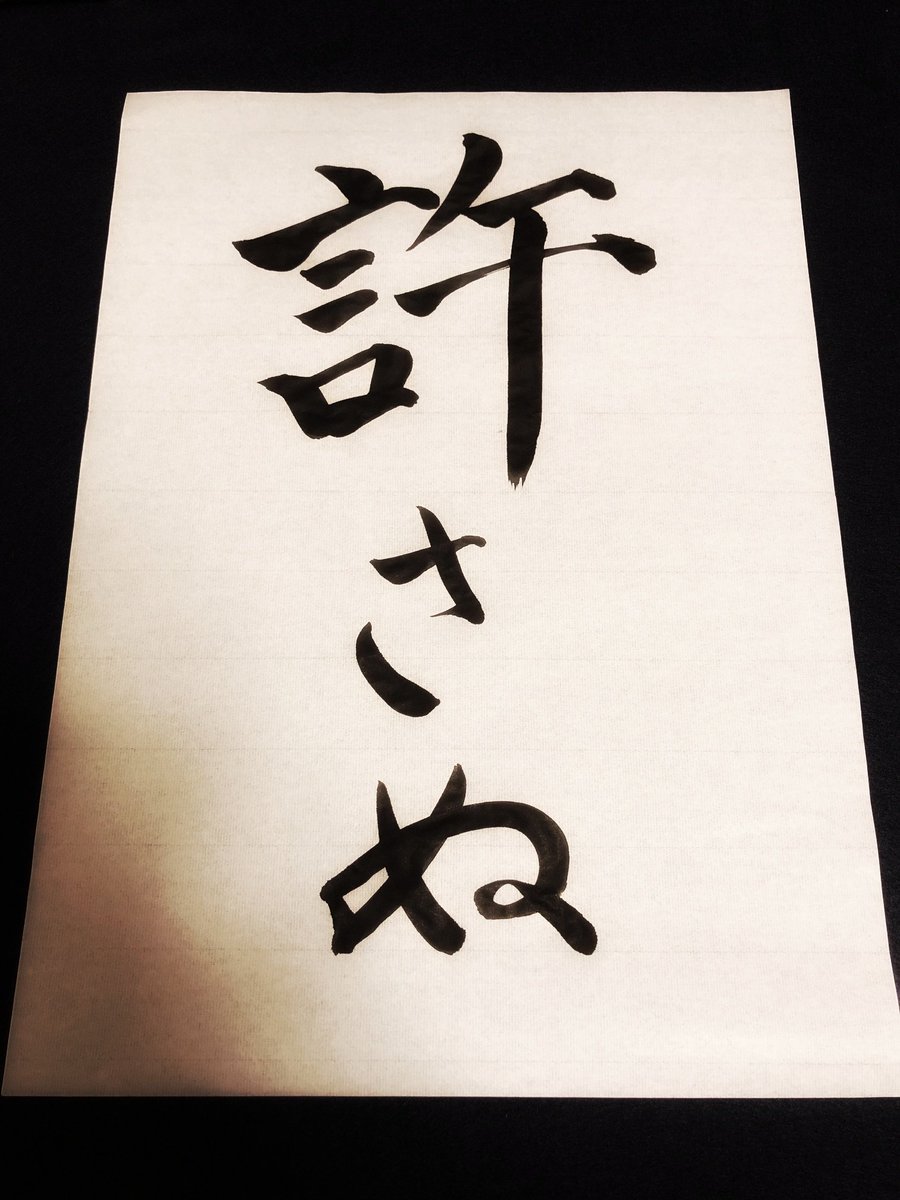 許さぬ